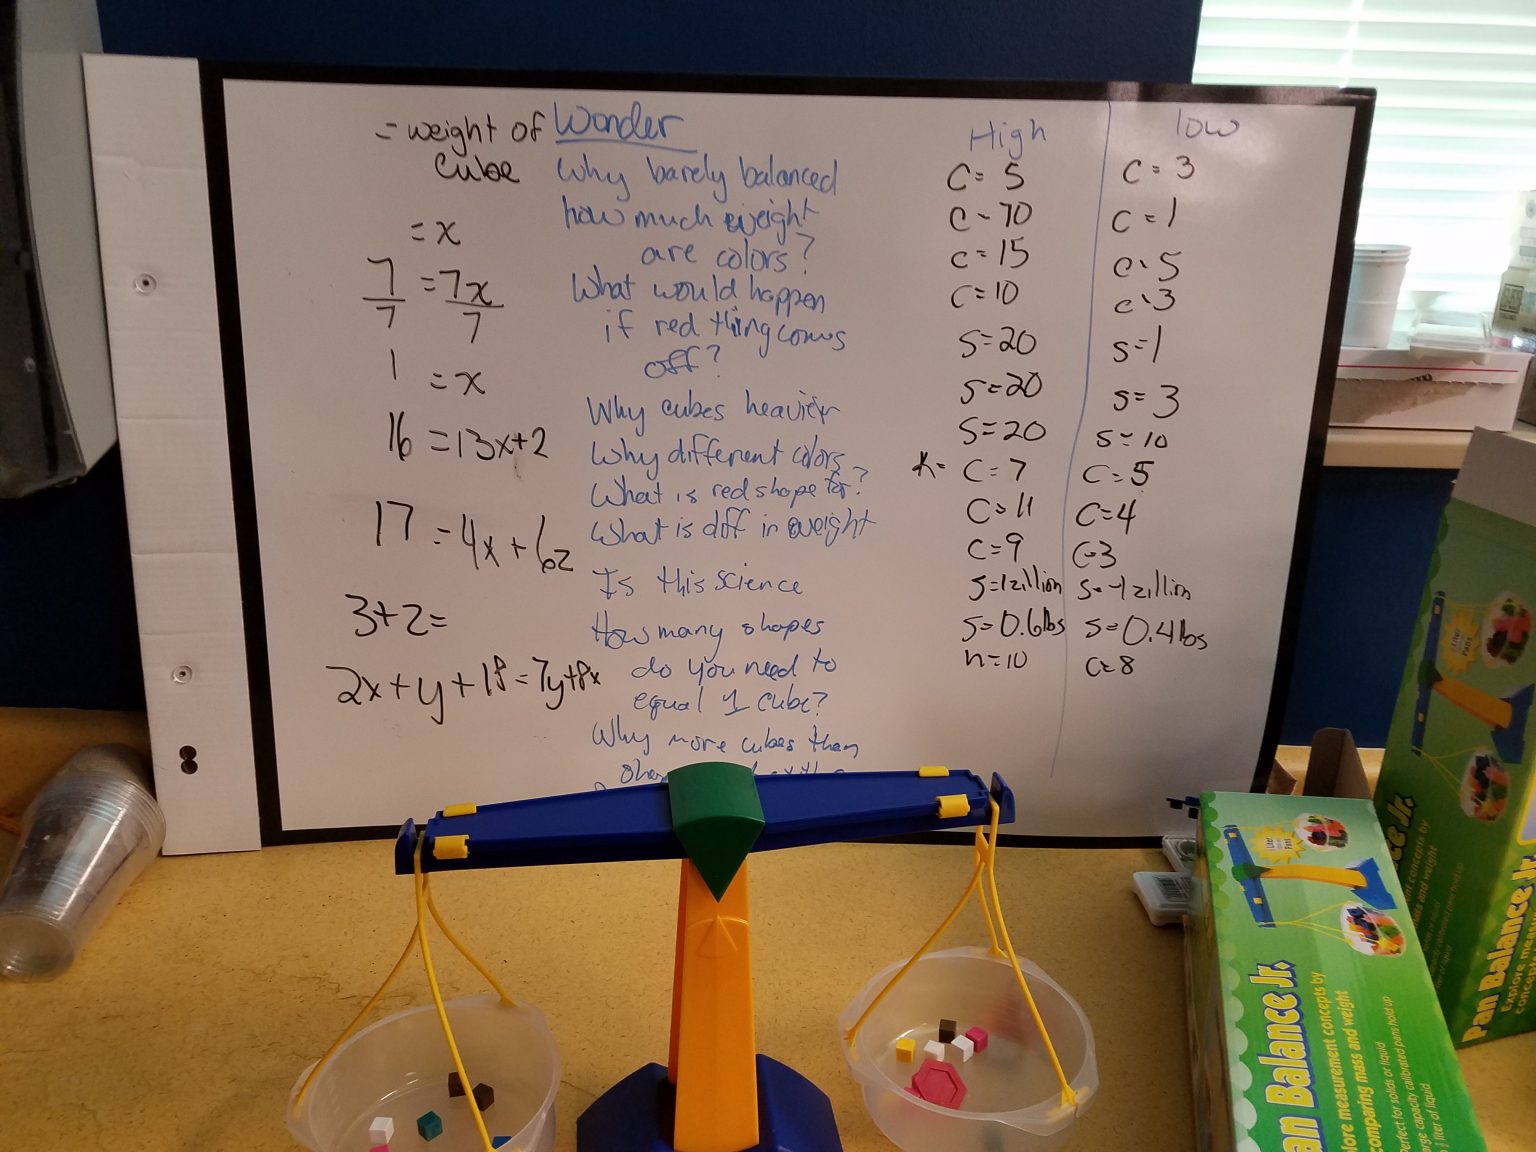 = weight of
cube
= x
7 = 7x
7 7
1 = x
16 = 13x+2
17 = 4x + 6z
3+2=
2x+y+18=7y+8x
Wonder
Why barely balanced
how much weight
are colors?
What would happen
if red thing comes
off?
Why cubes heavier
Why different colors
What is red shape for?
What is diff in weight
Is this science
How many shapes
do you need to
equal 1 cube?
Why more cubes than
High
C= 5
C= 70
C= 15
C= 10
S=20
S=20
S=20
C= 7
C= 11
C= 9
S=1zillion
S=0.6lbs
n=10
low
C= 3
C= 1
C= 5
C= 3
S=1
S= 3
S= 10
C= 5
C=4
C=3
S=-1zillion
S=0.4lbs
C=8
Liter
Pans
Pan Balance Jr.
Explore me
Liter
Pans
an Balance Jr.
plore measurement concepts by
comparing mass and weight
Perfect for solids or liquid
arge capacity calibrated pans hold up
liter of liquid